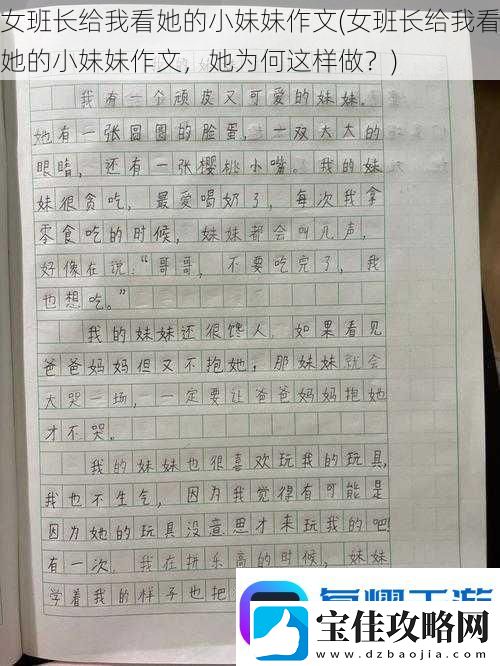 女班长给我看她的小妹妹作文(女班长给我看
她的小妹妹作文，她为何这样做？)
我有一个顽皮又可爱的妹妹.
她有一张圆圆的脸蛋，一双大大的
眼睛，还有一张樱桃小嘴。我的妹
妹很贪吃，最爱喝奶了，每次我拿
零食吃的时候，妹妹都会叫几声，
好像在说：“哥哥，不要吃完了，我
也想吃。”
我的妹妹还很馋人，如果看见
爸爸妈妈但又不抱她，那妹妹就会
大哭一场，一定要让爸爸妈妈抱她
才不哭。
我的妹妹也很喜欢玩我的玩具，
我也不生气，因为我觉得有可能是
因为她的玩具没意思才来玩我的吧
有一次，我在拼乐高的时候，妹妹
学着我的样子也把
宝佳攻略网
www.dzbaojia.com